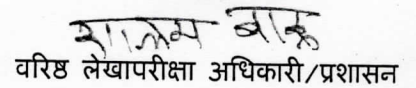 वरिष्ठ लेखापरीक्षा अधिकारी/प्रशासन